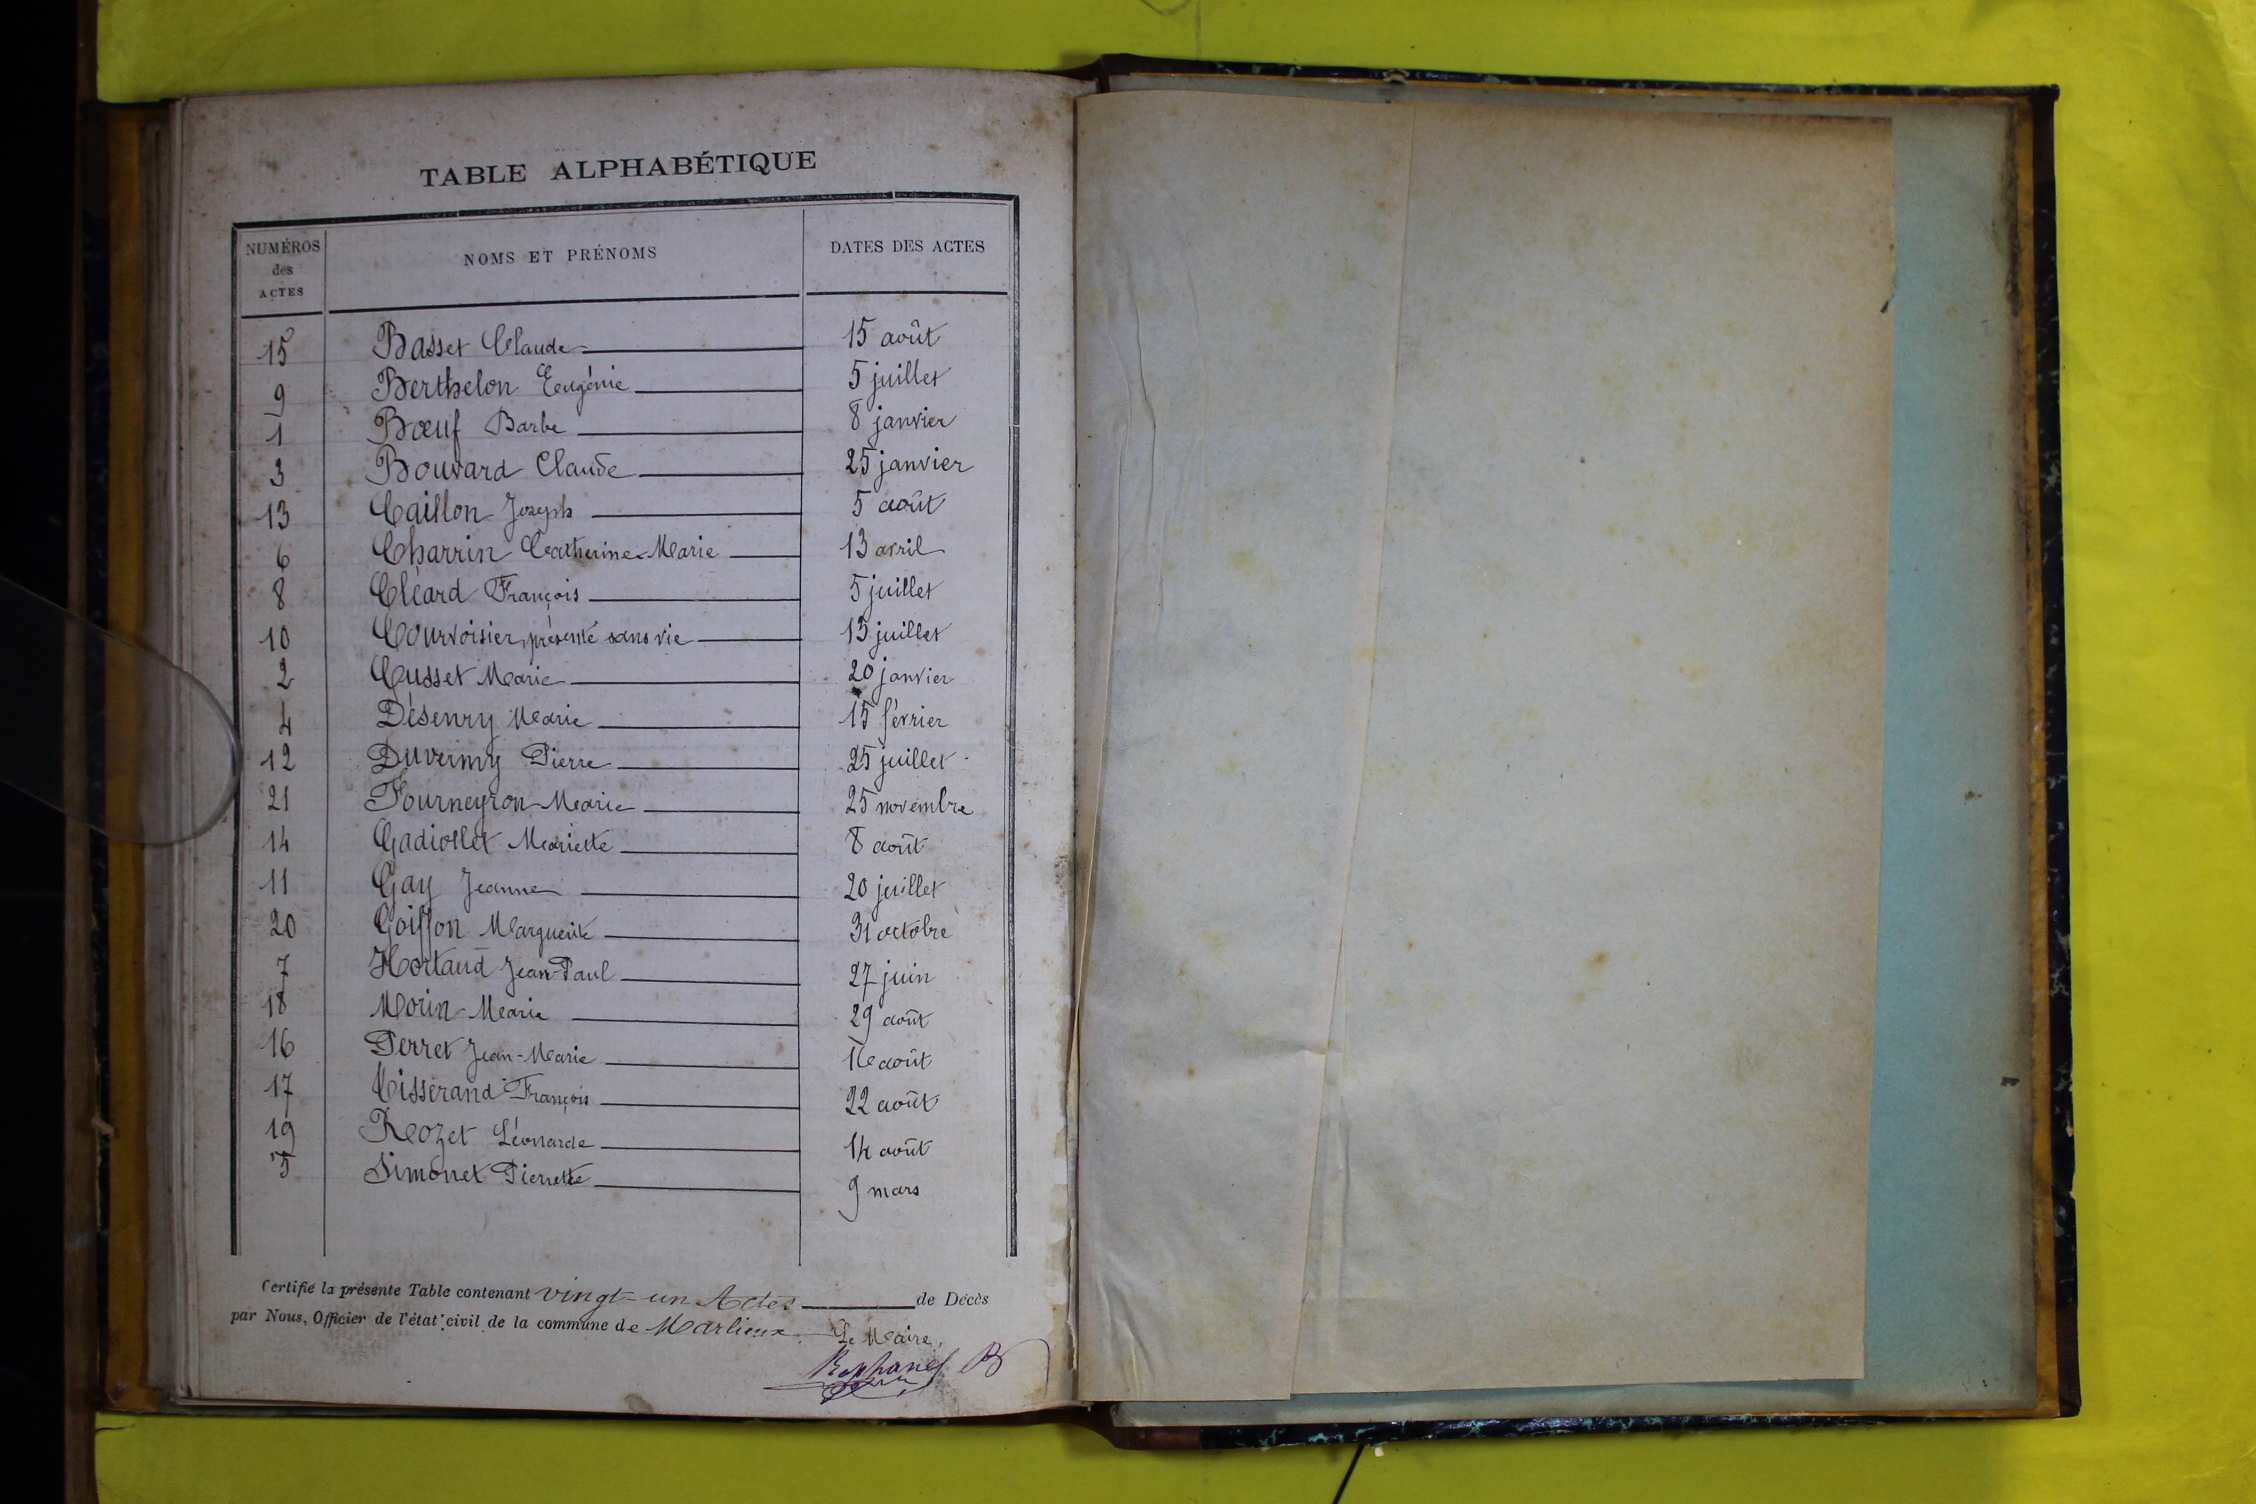 TABLE ALPHABÉTIQUE
NUMÉROS des ACTES NOMS ET PRÉNOMS DATES DES ACTES
15 Basset Claude 15 août
9 Berthelon Eugénie 5 juillet
1 Bœuf Barbe 8 janvier
3 Bouvard Claude 25 janvier
13 Caillon Joseph 5 août
6 Charrin Catherine-Marie 13 avril
8 Cléard François 5 juillet
10 Courvoisier, présenté sans vie 15 juillet
2 Cusset Marie 20 janvier
4 Désenry Marie 15 février
12 Duverny Pierre 25 juillet
21 Fourneyron Marie 25 novembre
14 Gadiollet Mariette 8 août
11 Gay Jeanne 20 juillet
20 Goiffon Marguerite 31 octobre
7 Hortaud Jean-Paul 27 juin
18 Morin Marie 29 août
16 Perret Jean-Marie 16 août
17 Tisserand François 22 août
19 Rozet Léonarde 14 août
5 Simonet Pierrette 9 mars
Certifié la présente Table contenant vingt-un Actes de Décès
par Nous, Officier de l'état civil de la commune de Marlieux. Le Maire,